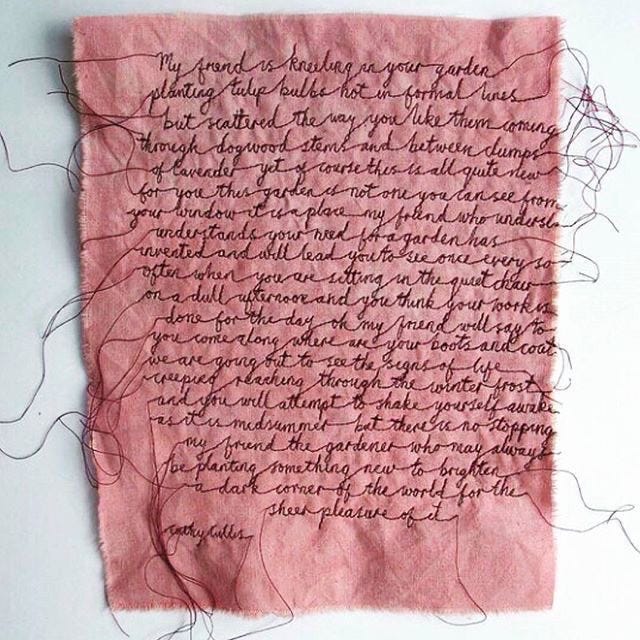 My friend is kneeling in your garden
planting tulip bulbs not in formal lines
but scattered the way you like them coming
through dogwood stems and between clumps
of lavender yet of course this is all quite new
for you this garden is not one you can see from
your window it is a place my friend who underst
understands your need for a garden has
invented and will lead you to see once every so
often when you are sitting in the quiet chair
on a dull afternoon and you think your work is
done for the day oh my friend will say to
you come along where are your boots and coat
we are going out to see the signs of life
creeping reaching through the winter frost
and you will attempt to shake yourself awake
as it is midsummer but there is no stopping
my friend the gardener who may always
be planting something new to brighten
a dark corner of the world for the
sheer pleasure of it
cathy cullis